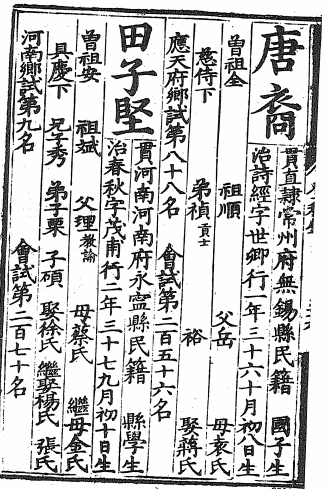 唐裔
貫直隸常州府無錫縣民籍 國子生
治詩經字世卿行一年三十六十月初八日生
曾祖全 祖順 父岳 母袁氏
慈侍下 弟禎貢士 裕 娶蔣氏
應天府鄉試第八十八名 會試第二百五十六名
田子堅
貫河南河南府永寧縣民籍 縣學生
治春秋字茂甫行二年三十七九月初十日生
曾祖安 祖斌 父理教諭 母蔡氏 繼母金氏
具慶下 兄子秀 弟子栗 子碩 娶徐氏 繼娶楊氏 張氏
河南鄉試第九名 會試第二百七十名